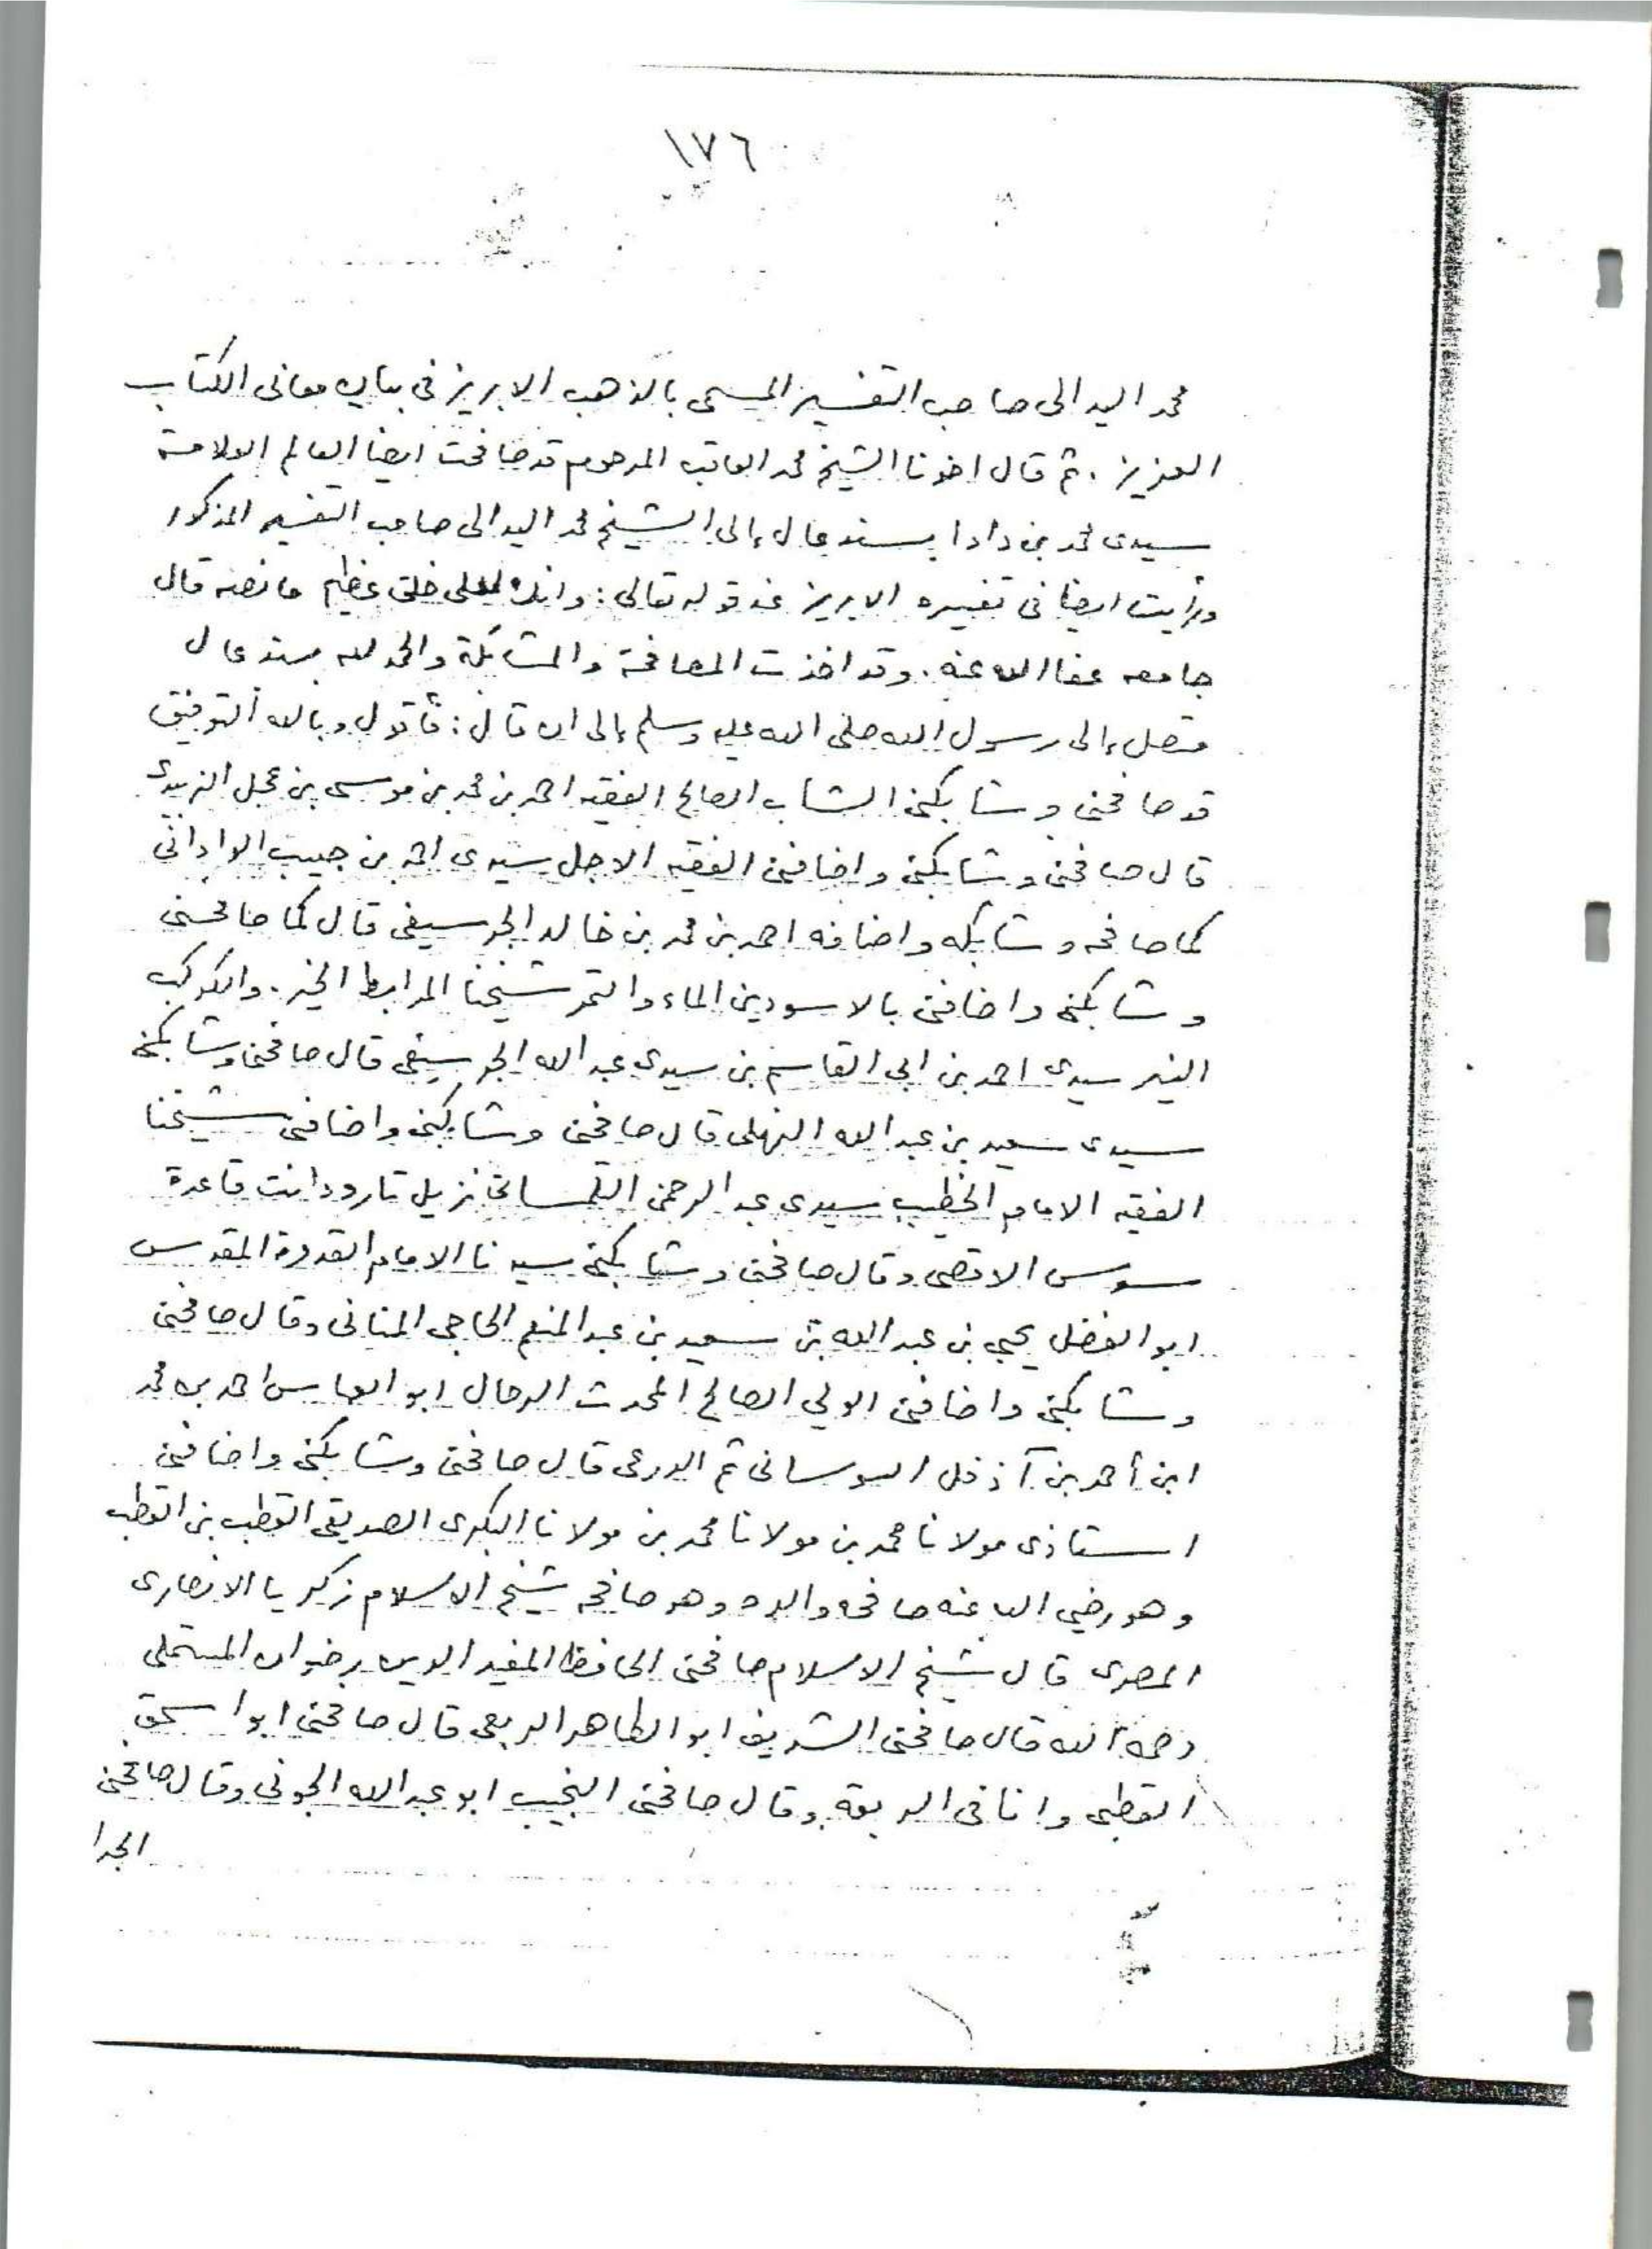 ١٧٦
محمد اليدالى صاحب التفسير المسمى بالذهب الابريز فى بيان معانى الكتاب
العزيز . ثم قال اخونا الشيخ محمد العاقب المرحوم قد صافحت ايضا العالم العلامة
سيدى محمد بن دادا بسند عال إلى الشيخ محمد اليدالى صاحب التفسير المذكور
ورأيت ايضا فى تفسيره الابريز عند قوله تعالى : وانك لعلى خلق عظيم ما نصه قال
جامعه عفا الله عنه . وقد اخذت المصافحة والمشابكة والحمد لله بسند عال
متصل إلى رسول الله صلى الله عليه وسلم إلى ان قال : فأقول وبالله التوفيق
قد صافحنى وشابكنى الشاب الصالح الفقيه احمد بن محمد بن موسى بن عجل الزيدى
قال صافحنى وشابكنى واضافنى الفقيه الاجل سيدى احمد بن حبيب الوادانى
كما صافحه وشابكه واضافه احمد بن محمد بن خالد الجرسيفى قال كما صافحنى
وشابكنى واضافنى بالاسودين الماء والتمر شيخنا المرابط الخير . والكوكب
النير سيدى احمد بن ابى القاسم بن سيدى عبد الله الجرسيفى قال صافحنى وشابكنى
سيدى سعيد بن عبد الله النهلى قال صافحنى وشابكنى واضافنى شيخنا
الفقيه الامام الخطيب سيدى عبد الرحمن التلمسانى نزيل تارودانت قاعدة
سوس الاقصى وقال صافحنى وشابكنى سيدنا الامام القدوة المقدس
ابو الفضل يحيى بن عبد الله بن سعيد بن عبد المنعم الحاحى المنانى وقال صافحنى
وشابكنى واضافنى الولي الصالح المحدث الرحال ابو العباس احمد بن محمد
ابن أحمد بن آدفل السوسانى ثم الدرعى قال صافحنى وشابكنى واضافنى
استاذى مولانا محمد بن مولانا محمد بن مولانا البكرى الصديقى القطب بن القطب
وهو رضي الله عنه صافحه والده وهو صافحه شيخ الاسلام زكريا الانصارى
المصرى قال شيخ الاسلام صافحنى الحافظ المفيد الدين رضوان المستملى
رحمه الله قال صافحنى الشريف ابو الطاهر الربعى قال صافحنى ابو اسحق
القطبى وانا فى الربقة وقال صافحنى النجيب ابو عبد الله الجونى وقال صافحنى
الجدا